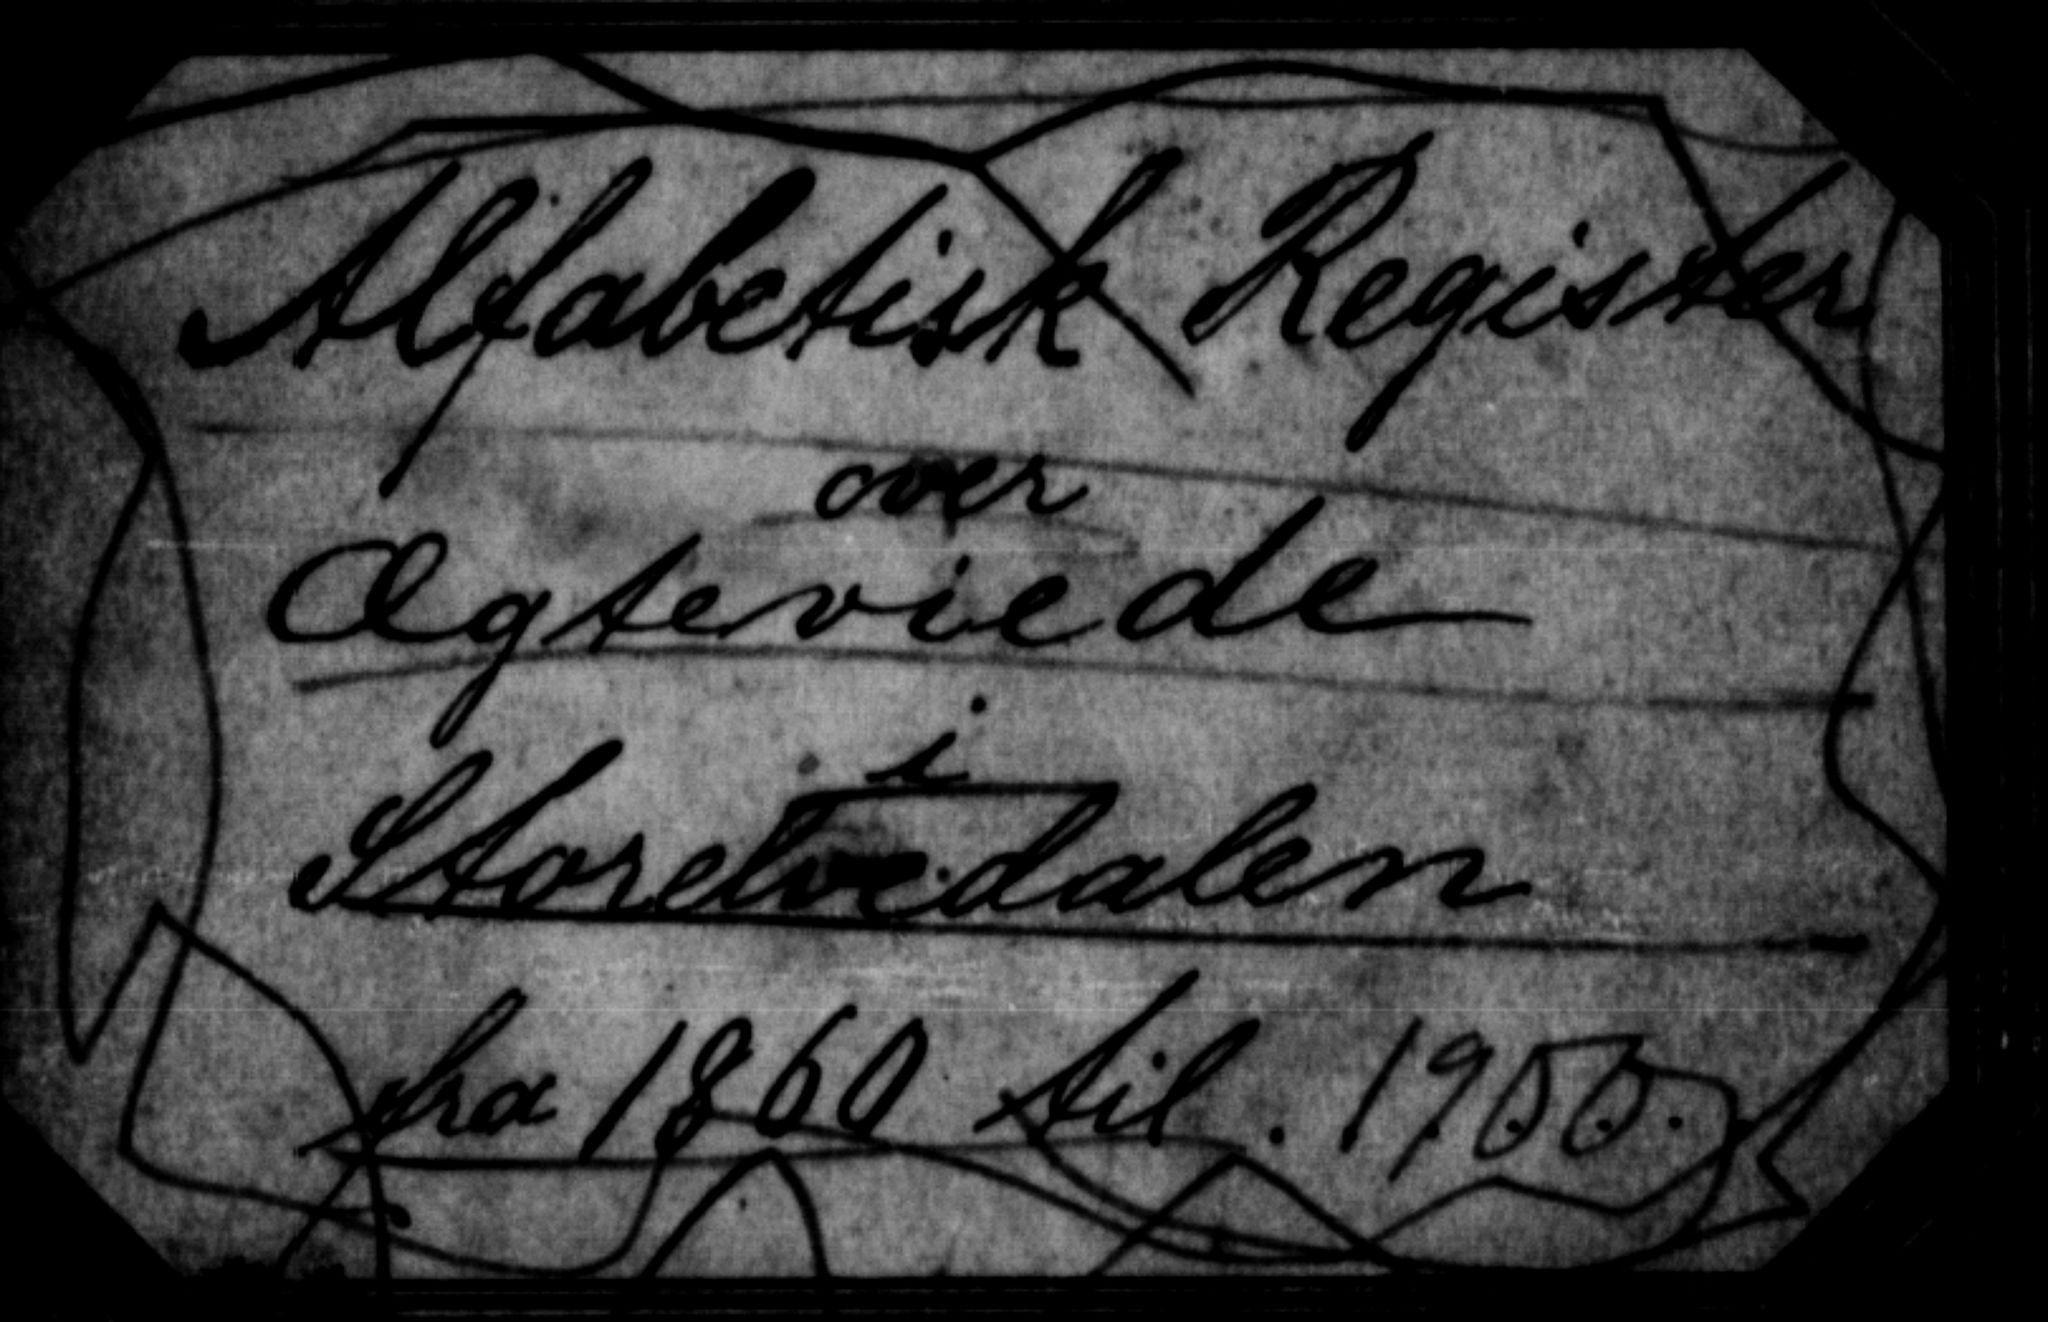 Alfabetisk Register
over
Ægteviede
i
Storelvedalen
fra 1860 til . 1900.